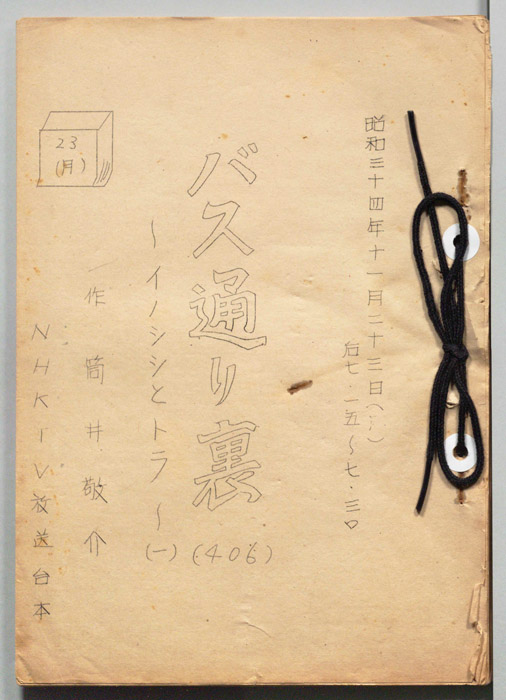 昭和三十四年十一月二十三日(…)
后七.一五〜七.三〇
バス通り裏(406)
〜イノシシとトラ〜(一)
作 筒井敬介
NHKTV放送台本
23
(月)